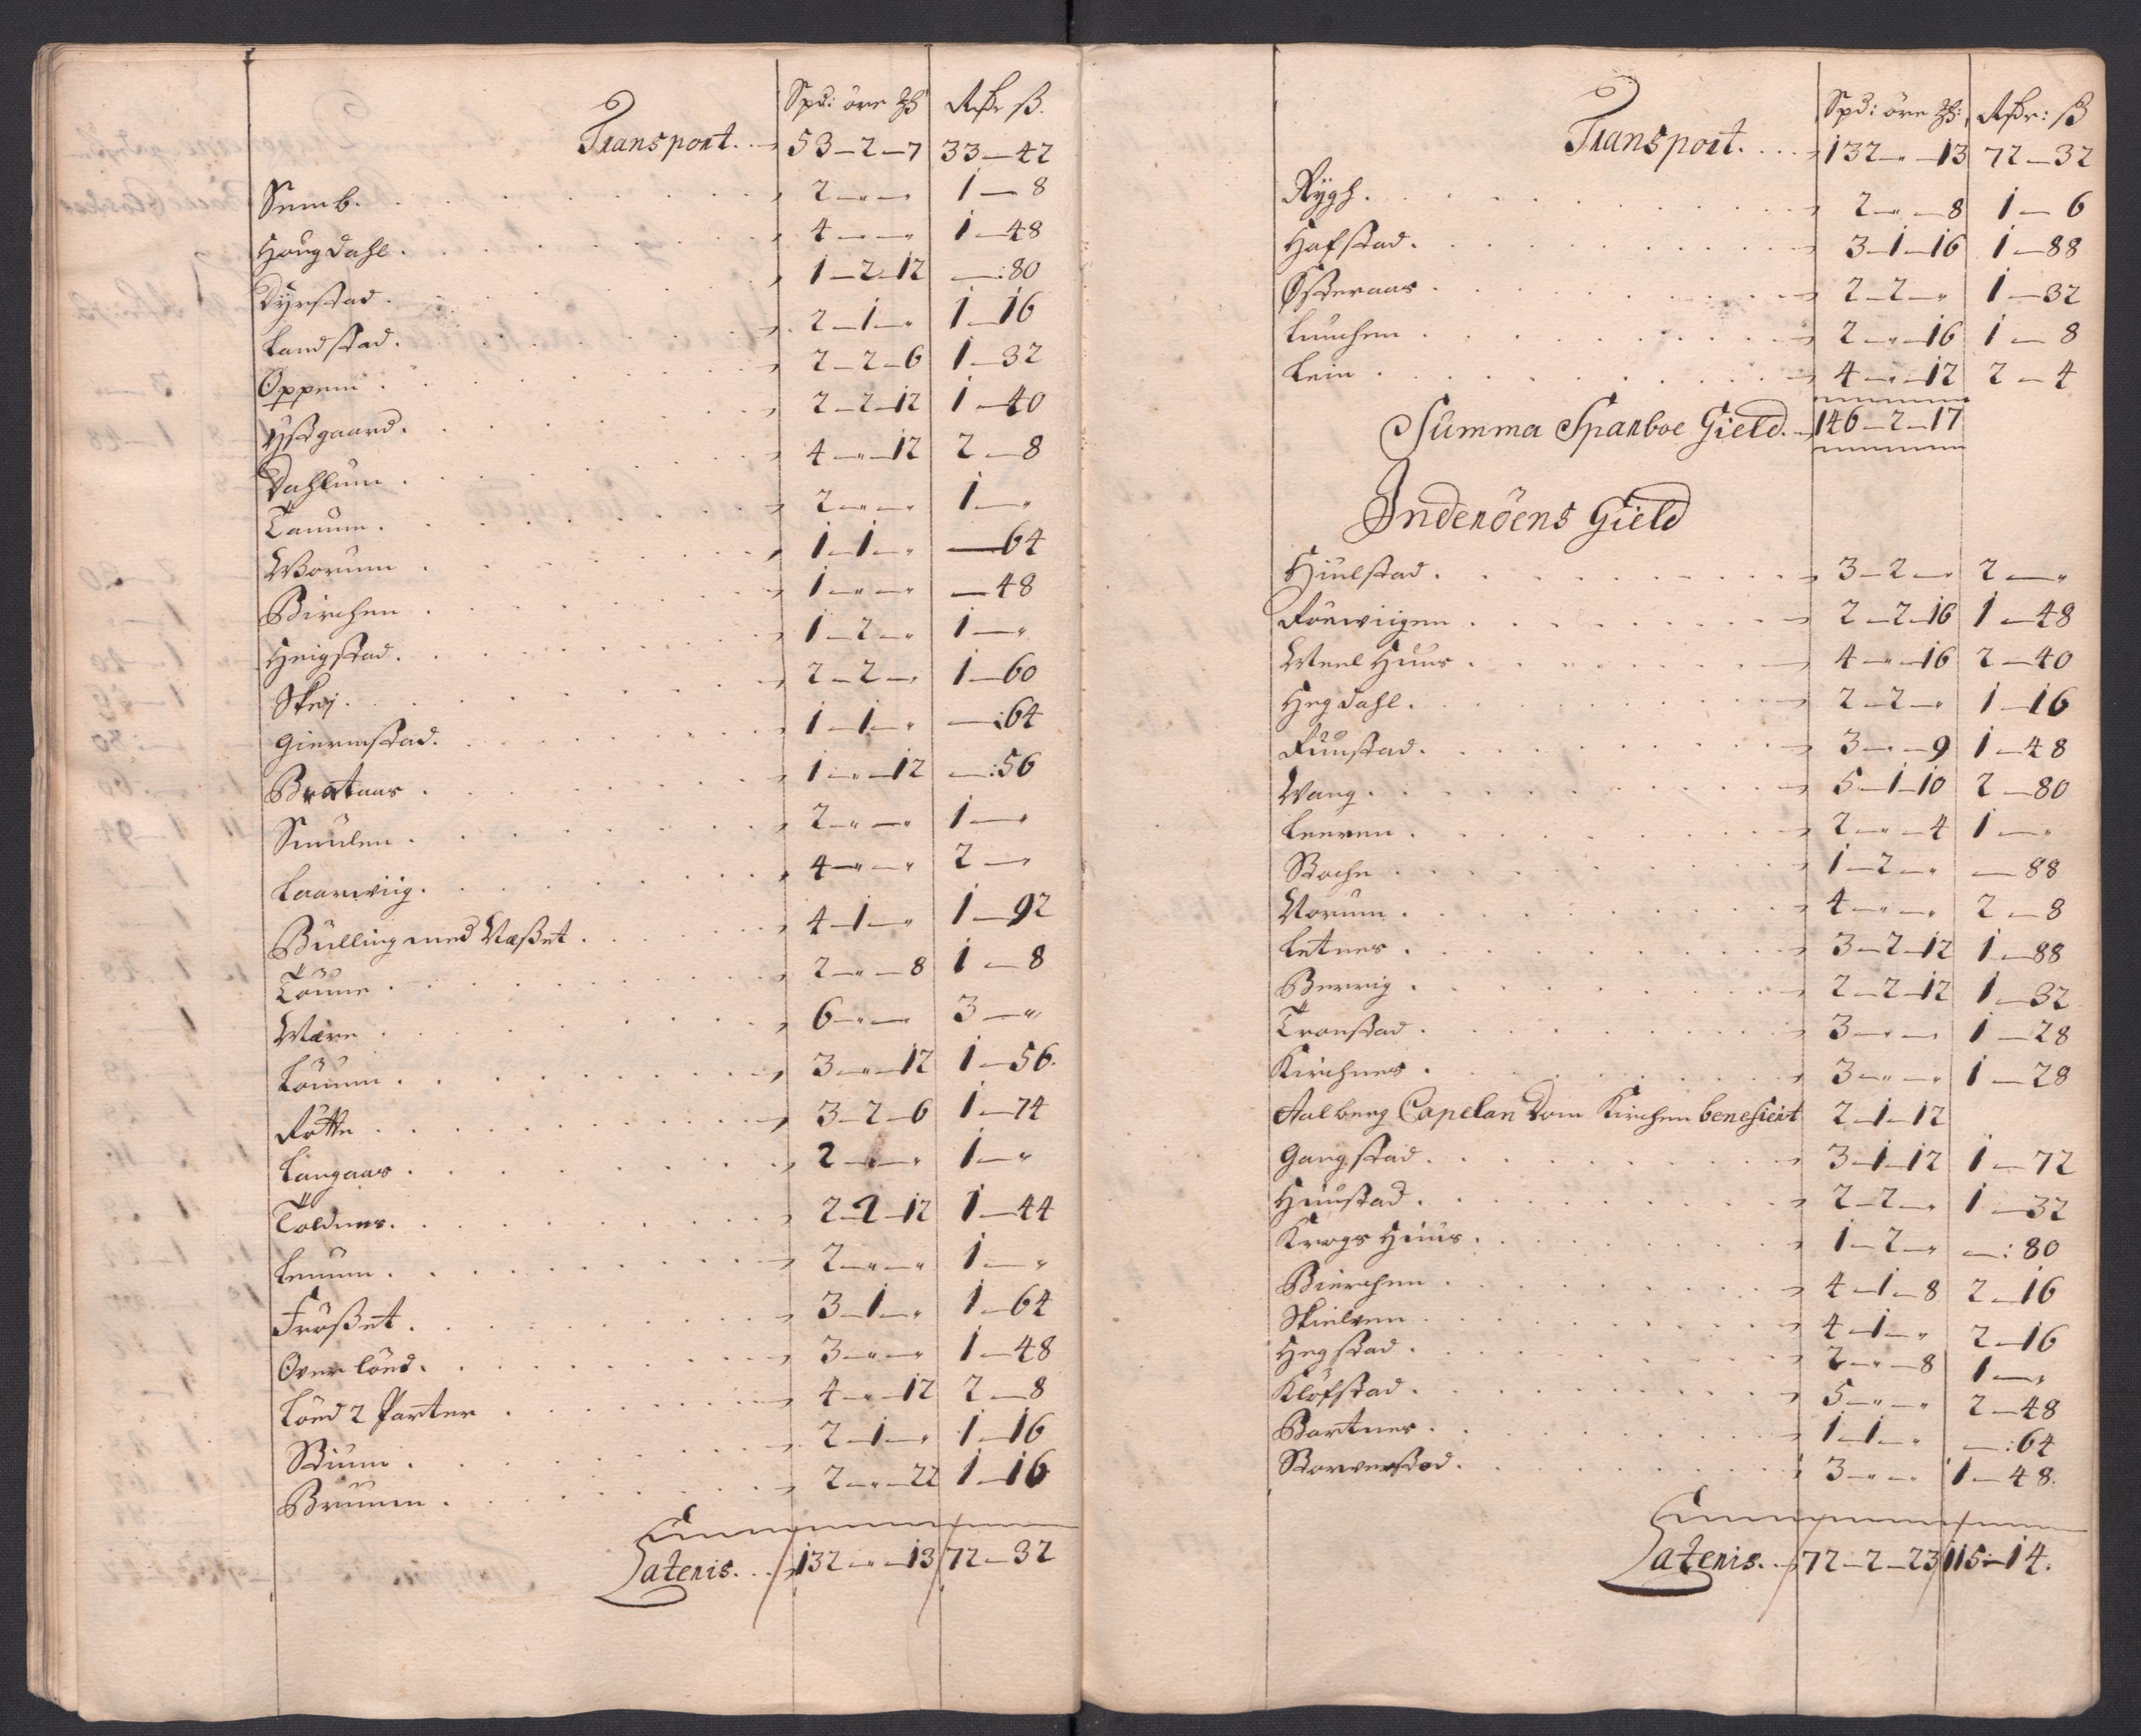 Spd: öre ₰ Rdr ß.
Transport. 53-2-7 33-42
Semb. 2-"-" 1-8
Hougdahl. 4-"-" 1-48
Dyrstad. 1-2-12 -:80
Landstad. 2-1-" 1-16
Oppem 2-2-6 1-32
Ystgaard. 2-2-12 1-40
Dahlum 4-"-12 2-8
Tanum. 2-"-" 1-"
Worum 1-1-" -64
Birchen 1-"-" -48
Heigstad. 1-2-" 1-"
Skej. 2-2-" 1-60
Giermstad. 1-1-" -:64
Brataas 1-"-12 -:56
Smulen 2-"-" 1-"
Laarwiig. 4-"-" 2-"
Bulling med Næßet 4-1-" 1-92
Toune 2-"-8 1-8
Være 6-"-" 3-"
Loumn 3-"-12 1-56.
Føtte 3-2-6 1-74
Langaas 2-"-" 1-"
Toldnes. 2-2-12 1-44
Lemum 2-"-" 1-"
Frößet. 3-1-" 1-64
Over Lönd. 3-"-" 1-48
Lönd 2 Parter 4-"-12 2-8
Stuum 2-1-" 1-16
Bruum 2-"-22 1-16
Lateris. 132-"-13 72-32
Spd: öre ₰: Rdr: ß
Transport. 132-"-13 72-32
Rygh. 2-"-8 1-6
Hafstad. 3-1-16 1-88
Østeraas 2-2-" 1-32
Lunchen 2-"-16 1-8
Lein 4-"-12 2-4
Summa Sparboe Gield. 146-2-17
Inderöens Gield
Hiulstad. 3-2-" 2-"
Röewiigen 2-2-16 1-48
Weel Huus 4-"-16 2-40
Hegdahl. 2-2-" 1-16
Ruustad. 3-"-9 1-48
Wang. 5-1-10 2-80
Leeren 2-"-4 1-"
Stoche 1-2-" -88
Norum 4-"-" 2-8
Letnes 3-2-12 1-88
Berrig 2-2-12 1-32
Tronstad 3-"-" 1-28
Kirchnes 3-"-" 1-28
Aalberg Capelan Dom Kirchen beneficiert 2-1-12
Gangstad. 3-1-12 1-72
Huustad. 2-2-" 1-32
Krogs Huus. 1-2-" -:80
Bierchen 4-1-8 2-16
Skielven 4-1-" 2-16
Hegstad 2-"-8 1-"
Klöfstad 5-"-" 2-48
Bartnes 1-1-" -:64
Storverstad. 3-"-" 1-48.
Lateris. 72-2-23 115-14.